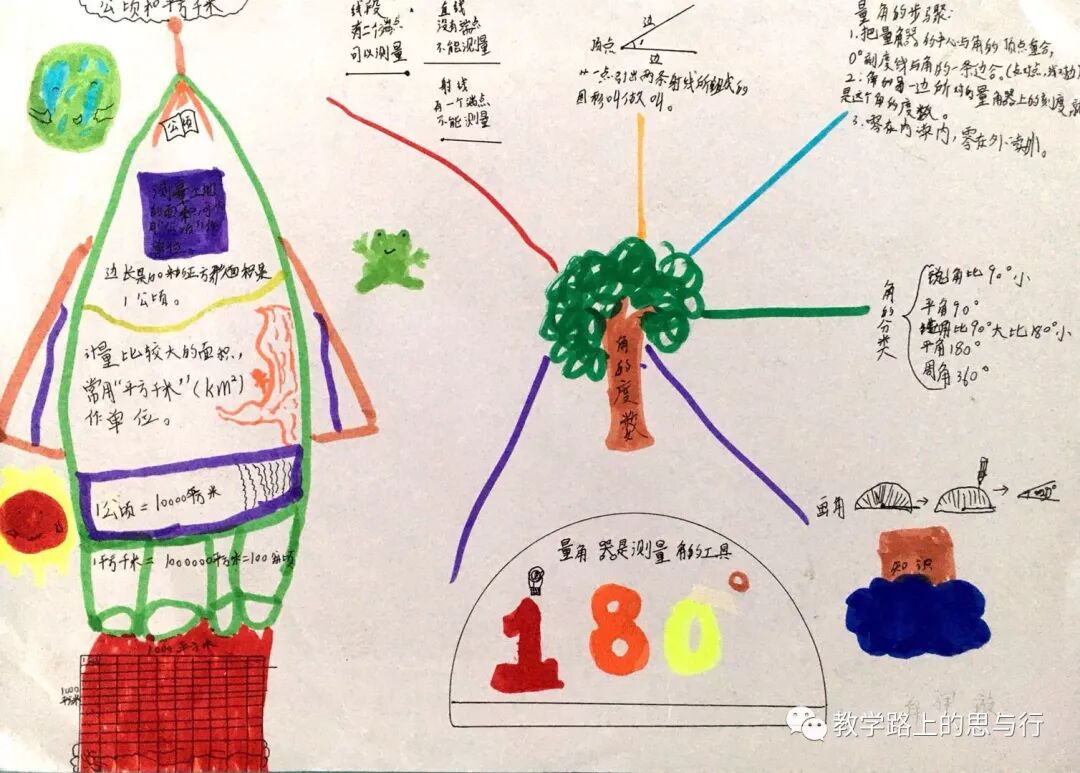 公顷和平方千米
公园
测量土地
的面积,可以
用"公顷"作
单位。
边长是100米的正方形面积是
1公顷。
计量比较大的面积,
常用"平方千米"(km²)
作单位。
1公顷=10000平方米
1平方千米=1000000平方米=100公顷
1000平方米
1000
平方米
线段
有二个端点
可以测量
直线
没有端点
不能测量
射线
有一个端点
不能测量
边
顶点
边
从一点引出两条射线所组成的
图形叫做叫。
量角的步骤:
1.把量角器的中心与角的顶点重合,
0°刻度线与角的一条边合。(点对点,线对边)
2:角的另一边所对的量角器上的刻度,就
是这个角的度数。
3.零在内读内,零在外读外。
角的度数
角的分类
锐角比90°小
平角90°
钝角比90°大比180°小
平角180°
周角360°
画角
知识
量角器是测量角的工具
180
教学路上的思与行